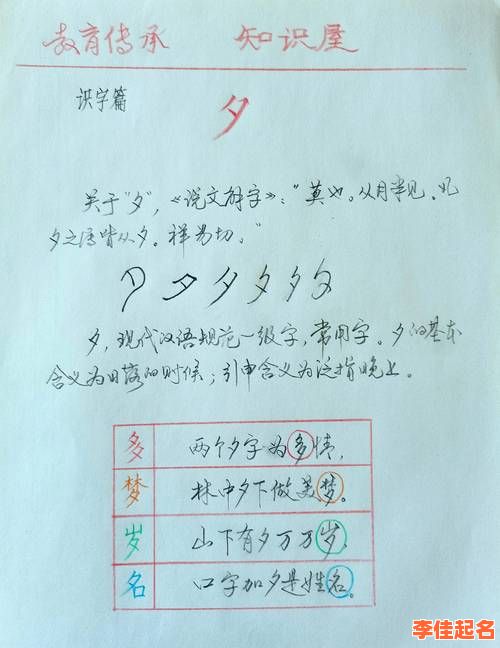 教育传承 知识屋
识字篇
夕
关于“夕”，《说文解字》：“莫也。从月半见。凡
夕之属皆从夕。祥易切。”
夕 夕 夕 夕 夕
夕，现代汉语规范一级字，常用字。夕的基本
含义为日落的时候；引申含义为泛指晚上。
多 两个夕字为多情，
梦 林中夕下做美梦。
岁 山下有夕万万岁，
名 口字加夕是姓名。
李佳起名